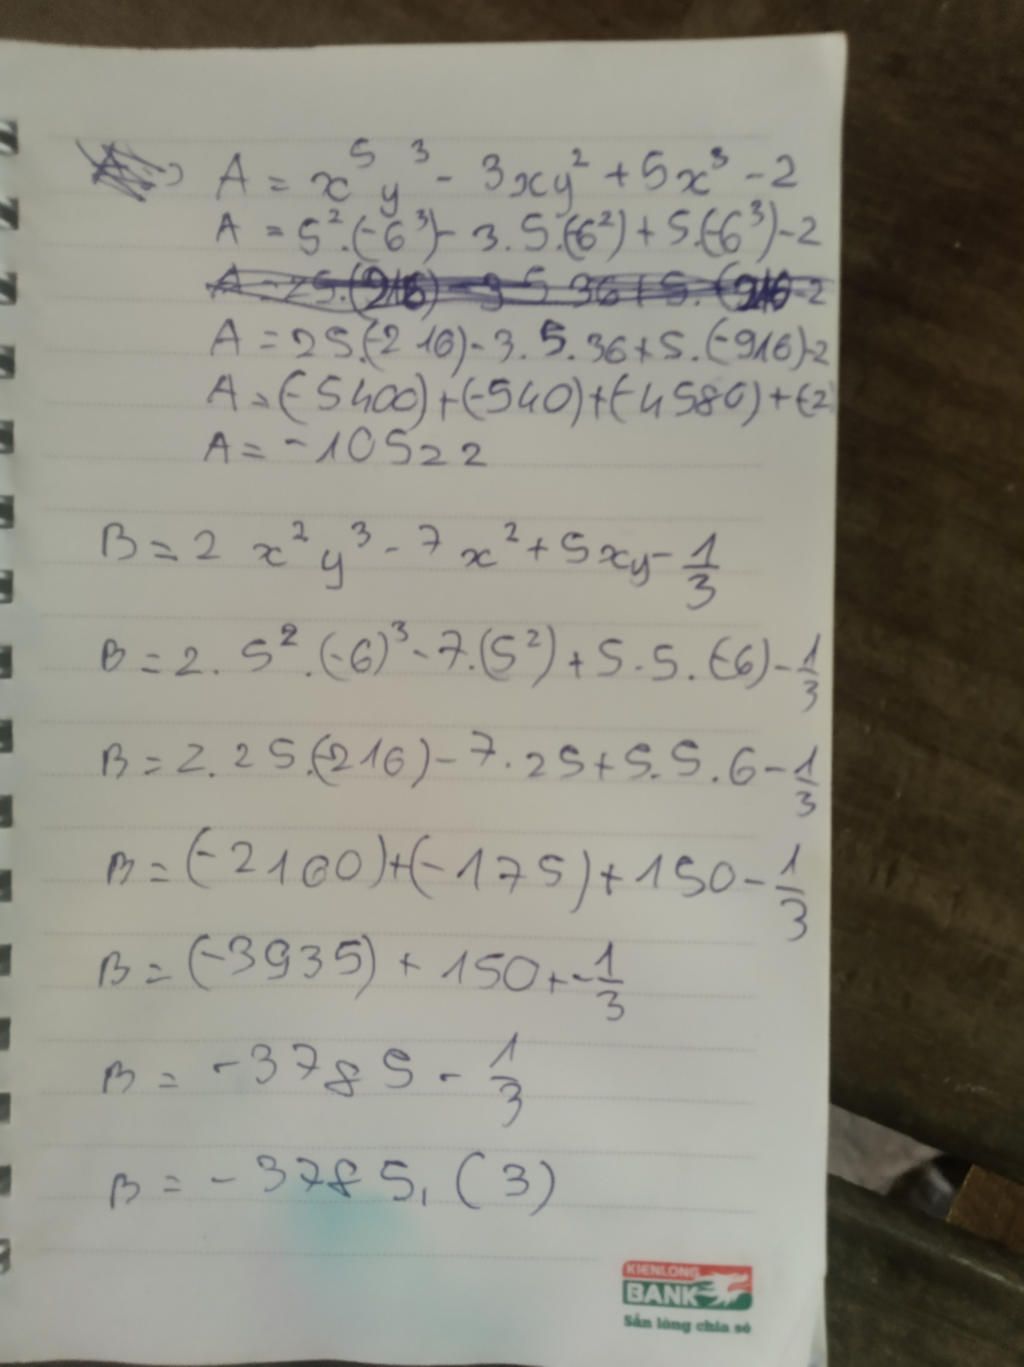 A = x⁵y³ - 3xy² + 5x³ - 2
A = 5².(-6³) - 3.5.(-6²) + 5.(-6³) - 2
A = 25.(-216) - 3.5.36 + 5.(-916) - 2
A = (-5400) + (-540) + (-4580) + (-2
A = -10522
B = 2 x²y³ - 7x² + 5xy - 1/3
B = 2. 5².(-6)³ - 7.(5²) + 5.5.(-6) - 1/3
B = 2.25.(-216) - 7.25 + 5.5.6 - 1/3
B = (-2160) + (-175) + 150 - 1/3
B = (-3935) + 150 + - 1/3
B = -3785 - 1/3
B = -3785, (3)
KIENLONG
BANK
Sẵn lòng chia sẻ